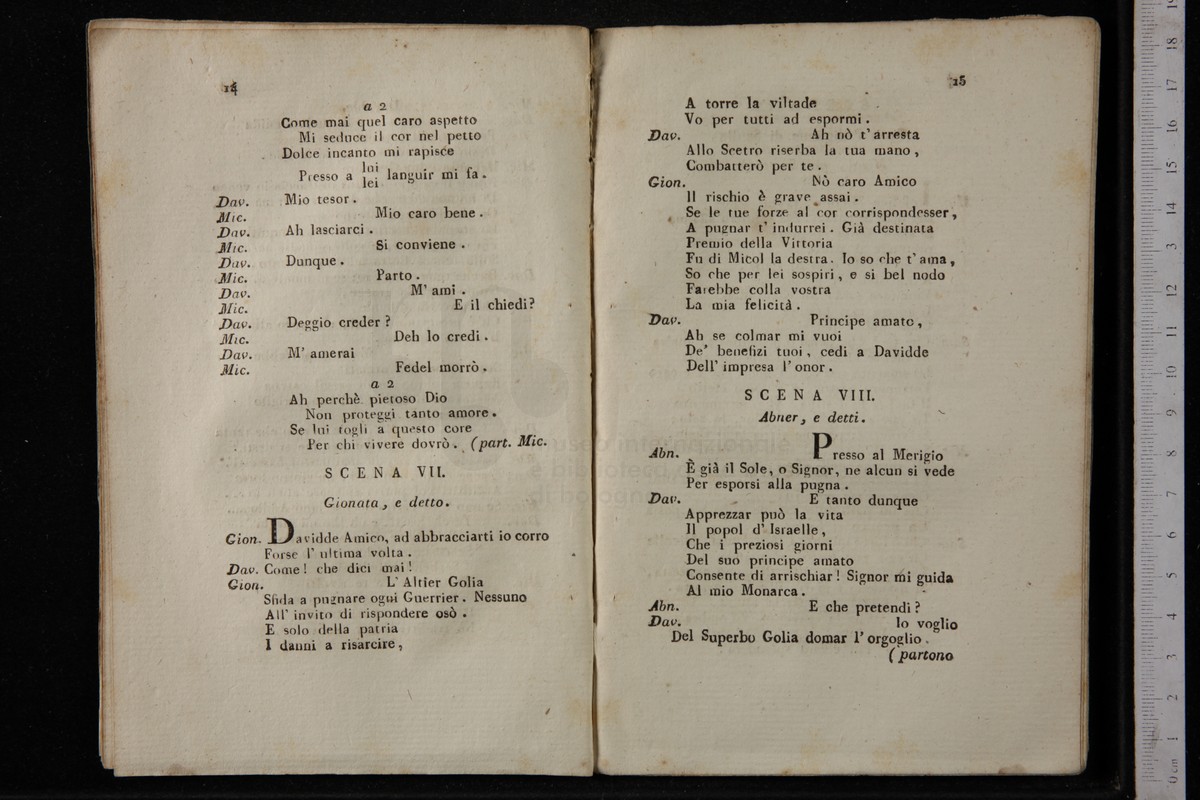 14
a 2
Come mai quel caro aspetto
Mi seduce il cor nel petto
Dolce incanto mi rapisce
Presso a lui lei languir mi fa.
Dav. Mio tesor.
Mic. Mio caro bene.
Dav. Ah lasciarci.
Mic. Si conviene.
Dav. Dunque.
Mic. Parto.
Dav. M' ami.
Mic. E il chiedi?
Dav. Deggio creder?
Mic. Deh lo credi.
Dav. M' amerai
Mic. Fedel morrò.
a 2
Ah perchè pietoso Dio
Non proteggi tanto amore.
Se lui togli a questo core
Per chi vivere dovrò. (part. Mic.
SCENA VII.
Gionata, e detto.
Gion. Davidde Amico, ad abbracciarti io corro
Forse l' ultima volta.
Dav. Come! che dici mai!
Gion. L' Altier Golia
Sfida a pugnare ogni Guerrier. Nessuno
All' invito di rispondere osò.
E solo della patria
I danni a risarcire,
15
A torre la viltade
Vo per tutti ad espormi.
Dav. Ah nò t' arresta
Allo Scetro riserba la tua mano,
Combatterò per te.
Gion. Nò caro Amico
Il rischio è grave assai.
Se le tue forze al cor corrispondesser,
A pugnar t' indurrei. Già destinata
Premio della Vittoria
Fu di Micol la destra. Io so che t' ama,
So che per lei sospiri, e si bel nodo
Farebbe colla vostra
La mia felicità.
Dav. Principe amato,
Ah se colmar mi vuoi
De' benefizi tuoi, cedi a Davidde
Dell' impresa l' onor.
SCENA VIII.
Abner, e detti.
Abn. Presso al Merigio
E già il Sole, o Signor, ne alcun si vede
Per esporsi alla pugna.
Dav. E tanto dunque
Apprezzar può la vita
Il popol d' Israelle,
Che i preziosi giorni
Del suo principe amato
Consente di arrischiar! Signor mi guida
Al mio Monarca.
Abn. E che pretendi?
Dav. Io voglio
Del Superbo Golia domar l' orgoglio.
(partono